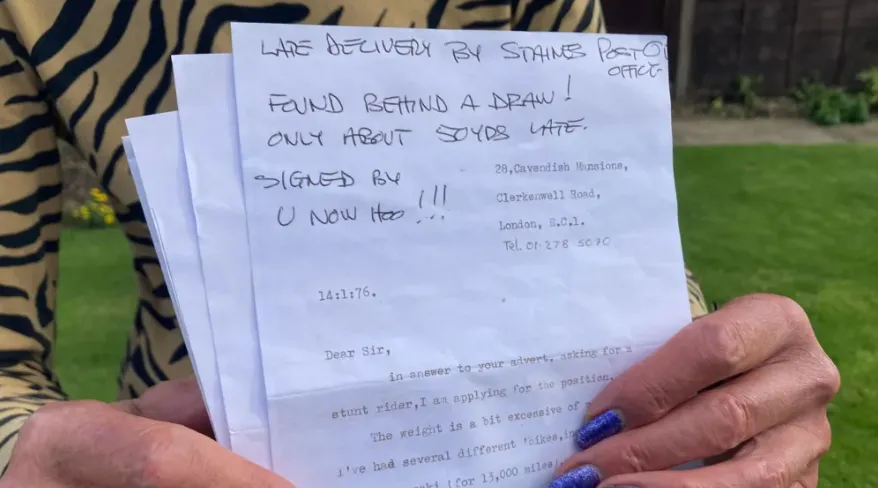 LATE DELIVERY BY STAINES POST
OFFICE
FOUND BEHIND A DRAW!
ONLY ABOUT 50YDS LATE.
SIGNED BY
U NOW HOO!!!
28,Cavendish Mansions,
Clerkenwell Road,
London, E.C.1.
Tel. 01-278 5070
14:1:76.
Dear Sir,
in answer to your advert, asking for a
stunt rider,I am applying for the position.
The weight is a bit excessive of
I've had several different 'bikes,in
(for 13,000 miles